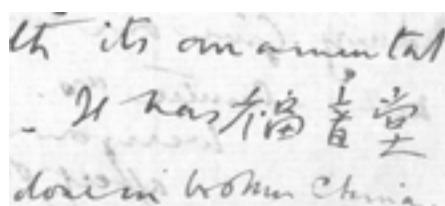 th its ornamental
. It has 福音堂
done in broken China.